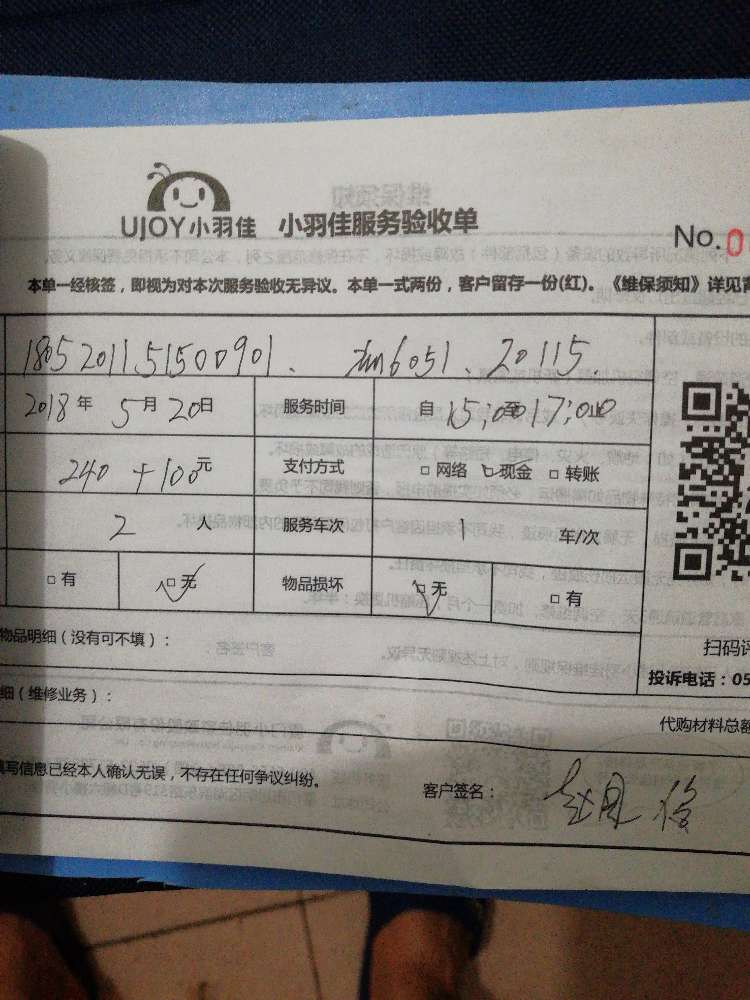 UJOY小羽佳 小羽佳服务验收单
No.0
本单一经核签，即视为对本次服务验收无异议。本单一式两份，客户留存一份(红)。《维保须知》详见背
1805201151500901. 6051. 20115.
2018年 5月20日 服务时间 自15:00至17:00止
240+100元 支付方式 □网络 □现金 □转账
2人 服务车次 1 车/次
□有 □无 物品损坏 □无 □有
物品明细（没有可不填）：
扫码评
投诉电话：05
细（维修业务）：
代购材料总额
填写信息已经本人确认无误，不存在任何争议纠纷。
客户签名：